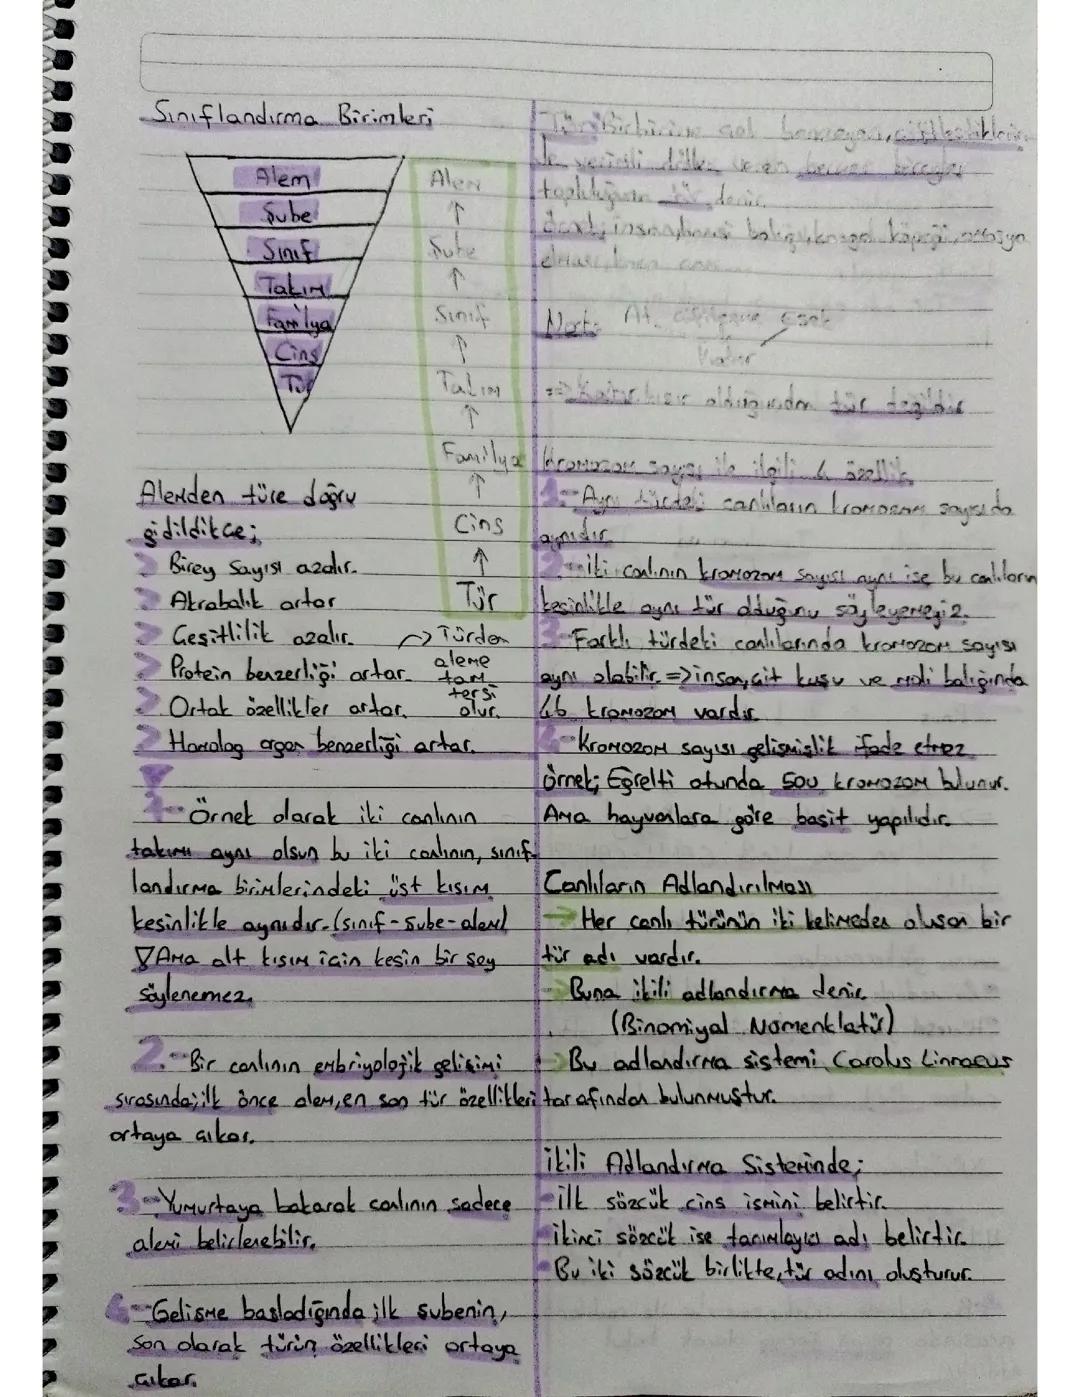 Sınıflandırma Birimleri
Alem
Şube
Sınıf
Takım
Familya
Cins
Tür
Alem
↑
Şube
↑
Sınıf
↑
Takım
↑
Familya
↑
Cins
↑
Tür
Alemden türe doğru
gidildikçe;
> Birey sayısı azalır.
> Akrabalık artar
> Çeşitlilik azalır.
> Protein benzerliği artar.
> Ortak özellikler artar.
> Homolog organ benzerliği artar.
→ Türden
aleme
tam
tersi
olur.
1- Örnek olarak iki canlının
takımı aynı olsun bu iki canlının, sınıf-
landırma birimlerindeki üst kısım
kesinlikle aynıdır. (sınıf-şube-alem)
∇ Ama alt kısım için kesin bir şey
söylenemez.
2.- Bir canlının embriyolojik gelişimi
sırasında; ilk önce alem, en son tür özellikleri
ortaya çıkar.
3- Yumurtaya bakarak canlının sadece
alemi belirlenebilir.
4- Gelişme başladığında ilk şubenin,
son olarak türün özellikleri ortaya
çıkar.
toplluluğuna tür denir.
Not: At eşek
Katır
=> Katır kısır olduğundan tür değildir
Kromozom sayısı ile ilgili 4 özellik
1- Aynı türdeki canlıların kromozom sayısı da
aynıdır.
2- İki canlının kromozom sayısı aynı ise bu canlıların
kesinlikle aynı tür olduğunu söyleyemeyiz.
3- Farklı türdeki canlılarında kromozom sayısı
aynı olabilir. => insan, çit kuşu ve moli balığında
46 kromozom vardır.
4- Kromozom sayısı gelişmişlik ifade etmez
örnek; Eğrelti otunda 500 kromozom bulunur.
Ama hayvanlara göre basit yapılıdır.
Canlıların Adlandırılması
→ Her canlı türünün iki kelimeden oluşan bir
tür adı vardır.
→ Buna ikili adlandırma denir.
(Binomiyal Nomenklatür)
→ Bu adlandırma sistemi Carolus Linnaeus
tarafından bulunmuştur.
İkili Adlandırma Sisteminde;
- İlk sözcük cins ismini belirtir.
- İkinci sözcük ise tanımlayıcı adı belirtir.
- Bu iki sözcük birlikte, tür adını oluşturur.